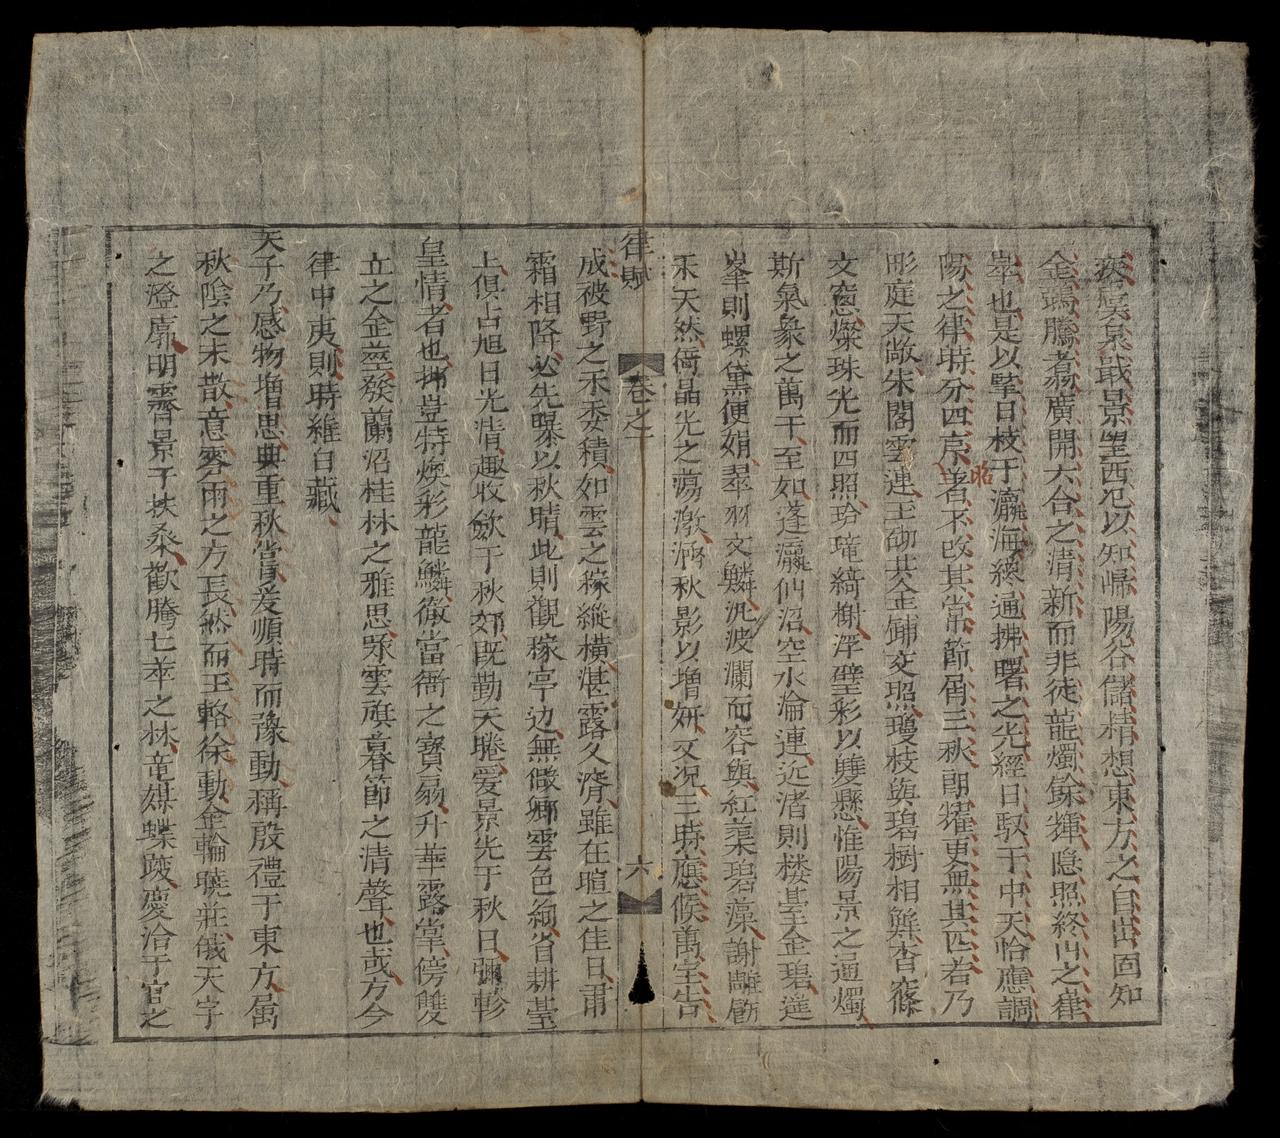 虞泉戢景望西氾以知歸陽谷儲精想東方之自出固知
金鴉騰翥廣開六合之清新而非徒龍燭餘輝隐照終山之嵂
崒也是以擎日枝于瀛海終通拂曙之光經日馭于中天恰應調
陽之律時分四京者不改其常節屑三秋朗耀更無其匹若乃
昭
彤庭天敞朱閣雲連玉砌共金鋪交照瓊枝與碧樹相鮮杳窱
文窓燦珠光而四照玲瓏綺榭浮璧彩以雙懸惟陽景之通燭
斯氣象之萬千至如蓬瀛仙沼空水淪連近渚則楼臺金碧遥
峯則螺黛便娟翠羽文鱗汎波瀾而容與紅蕖碧藻謝雕
禾天然衙晶光之蕩漾涵秋影以增妍又况三時應候萬宝告
律賦
卷之一
六
成被野之禾委積如雲之稼縱橫湛露久濟雖在暄之佳日肅
霜相降必先曝以秋晴此則觀稼亭边無儀鄉雲色絢省耕臺
上俱占旭日光清趣收歛于秋郊既勤天睠爱景光于秋日彌軫
皇情者也抑豈特焕彩龍鱗徹當衙之寶扇升華露掌傍雙
立之金莖發蘭沼桂林之雅思雲旗暮節之清聲也哉方今
律中夷則時維白藏
天子乃感物增思典重秋嘗爰順時而豫動稱殷禮于東方属
秋陰之未散意零雨之方長然而玉輅徐動金輪曉莊俄天字
之澄廓明霽景于扶桑歡騰七萃之林竜媒蝶躞慶洽于官之